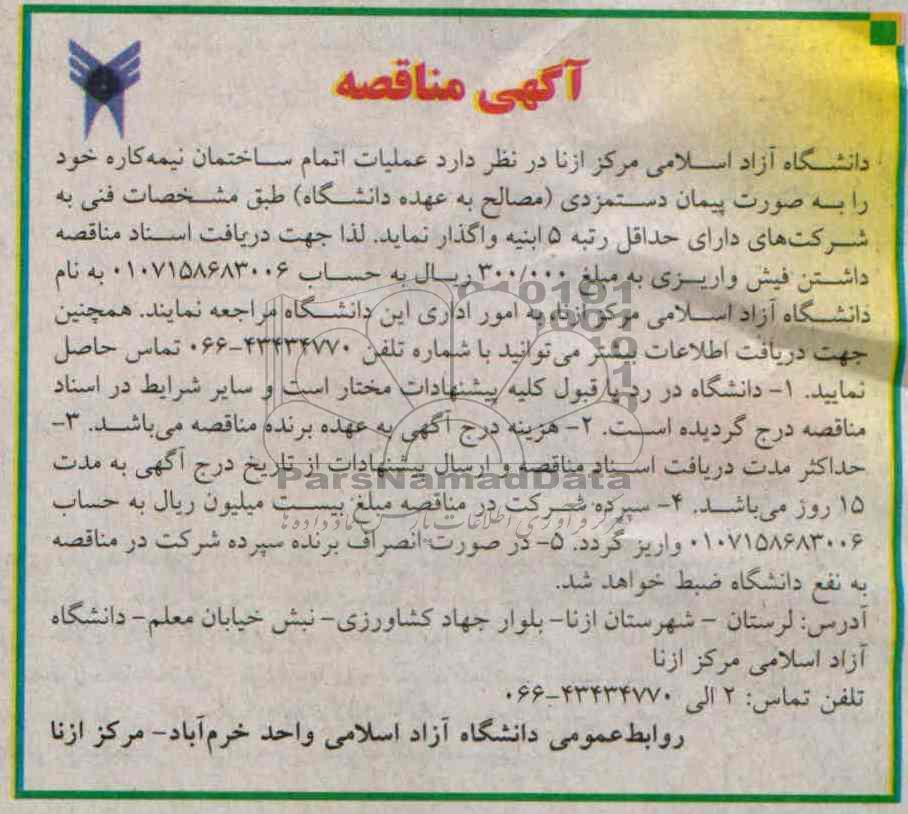 آگهی مناقصه
دانشگاه آزاد اسلامی مرکز ازنا در نظر دارد عملیات اتمام ساختمان نیمه‌کاره خود
را به صورت پیمان دستمزدی (مصالح به عهده دانشگاه) طبق مشخصات فنی به
شرکت‌های دارای حداقل رتبه ۵ ابنیه واگذار نماید. لذا جهت دریافت اسناد مناقصه
داشتن فیش واریزی به مبلغ ۳۰۰/۰۰۰ ریال به حساب ۰۱۰۷۱۵۸۶۸۳۰۰۶ به نام
دانشگاه آزاد اسلامی مرکز ازنا، به امور اداری این دانشگاه مراجعه نمایند. همچنین
جهت دریافت اطلاعات بیشتر می‌توانید با شماره تلفن ۴۳۴۳۴۷۷۰-۰۶۶ تماس حاصل
نمایید. ۱- دانشگاه در رد یا قبول کلیه پیشنهادات مختار است و سایر شرایط در اسناد
مناقصه درج گردیده است. ۲- هزینه درج آگهی به عهده برنده مناقصه می‌باشد. ۳-
حداکثر مدت دریافت اسناد مناقصه و ارسال پیشنهادات از تاریخ درج آگهی به مدت
۱۵ روز می‌باشد. ۴- سپرده شرکت در مناقصه مبلغ بیست میلیون ریال به حساب
۰۱۰۷۱۵۸۶۸۳۰۰۶ واریز گردد. ۵- در صورت انصراف برنده سپرده شرکت در مناقصه
به نفع دانشگاه ضبط خواهد شد.
آدرس: لرستان - شهرستان ازنا- بلوار جهاد کشاورزی- نبش خیابان معلم- دانشگاه
آزاد اسلامی مرکز ازنا
تلفن تماس: ۲ الی ۴۳۴۳۴۷۷۰-۰۶۶
روابط‌عمومی دانشگاه آزاد اسلامی واحد خرم‌آباد- مرکز ازنا
ParsNamadData